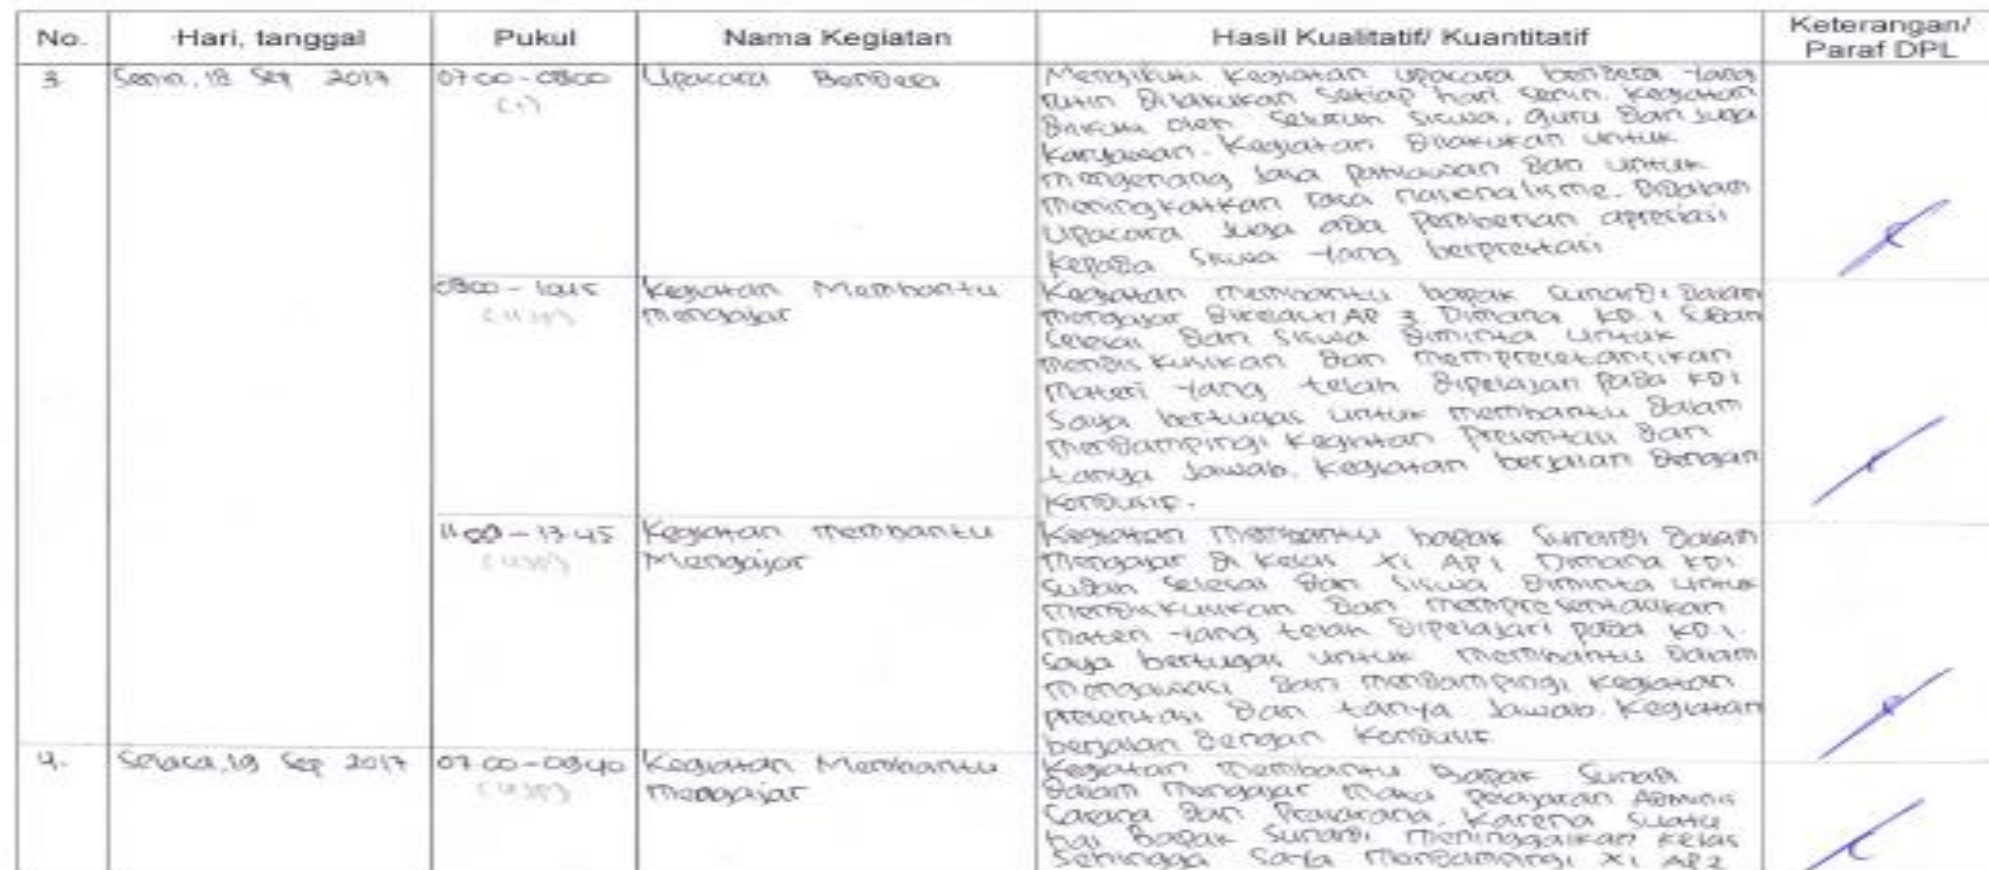 No. Hari, tanggal Pukul Nama Kegiatan Hasil Kualitatif/ Kuantitatif Keterangan/ Paraf DPL
3 Senin, 18 Sep 2017 07.00 - 08.00 Upacara Bendera
(1)
Mengikuti kegiatan upacara bendera yang
rutin dilakukan setiap hari senin. Kegiatan
diikuti oleh seluruh siswa, guru dan juga
karyawan. Kegiatan dilakukan untuk
mengenang jasa pahlawan dan untuk
meningkatkan rasa nasionalisme. Didalam
upacara juga ada pemberian apresiasi
kepada siswa yang berprestasi
08.00 - 10.45 Kegiatan Membantu
(4 JP) mengajar
Kegiatan membantu bapak Sunardi dalam
mengajar dikelas XI AP 3 Dimana KD.1 sudah
selesai dan siswa diminta untuk
mendiskusikan dan mempresetansikan
materi yang telah dipelajari pada KD1
Saya bertugas untuk membantu dalam
mendampingi kegiatan presentasi dan
tanya jawab. Kegiatan berjalan dengan
kondusif.
11.00 - 13.45 Kegiatan membantu
(4 JP) Mengajar
Kegiatan membantu bapak Sunardi dalam
mengajar di kelas XI AP 1 Dimana KD1
sudah selesai dan siswa diminta untuk
mendiskusikan dan mempresentasikan
materi yang telah dipelajari pada KD.1.
Saya bertugas untuk membantu dalam
mengawasi dan mendampingi kegiatan
presentasi dan tanya jawab. Kegiatan
berjalan dengan kondusif
4. Selasa, 19 Sep 2017 07.00 - 09.40 Kegiatan Membantu
(4 JP) mengajar
Kegiatan membantu Bapak Sunardi
dalam mengajar mata pelajaran Adminis
sarana dan Prasarana. Karena suatu
hal Bapak Sunardi meninggalkan kelas
sehingga saya mendampingi XI AP2